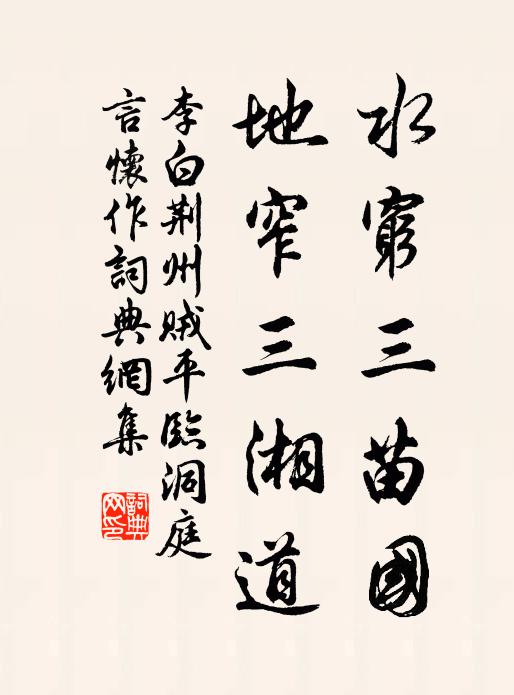 水窮三苗國
地窄三湘道
李白荆州賊平臨洞庭
言懷作詞典網集
詞典
网印